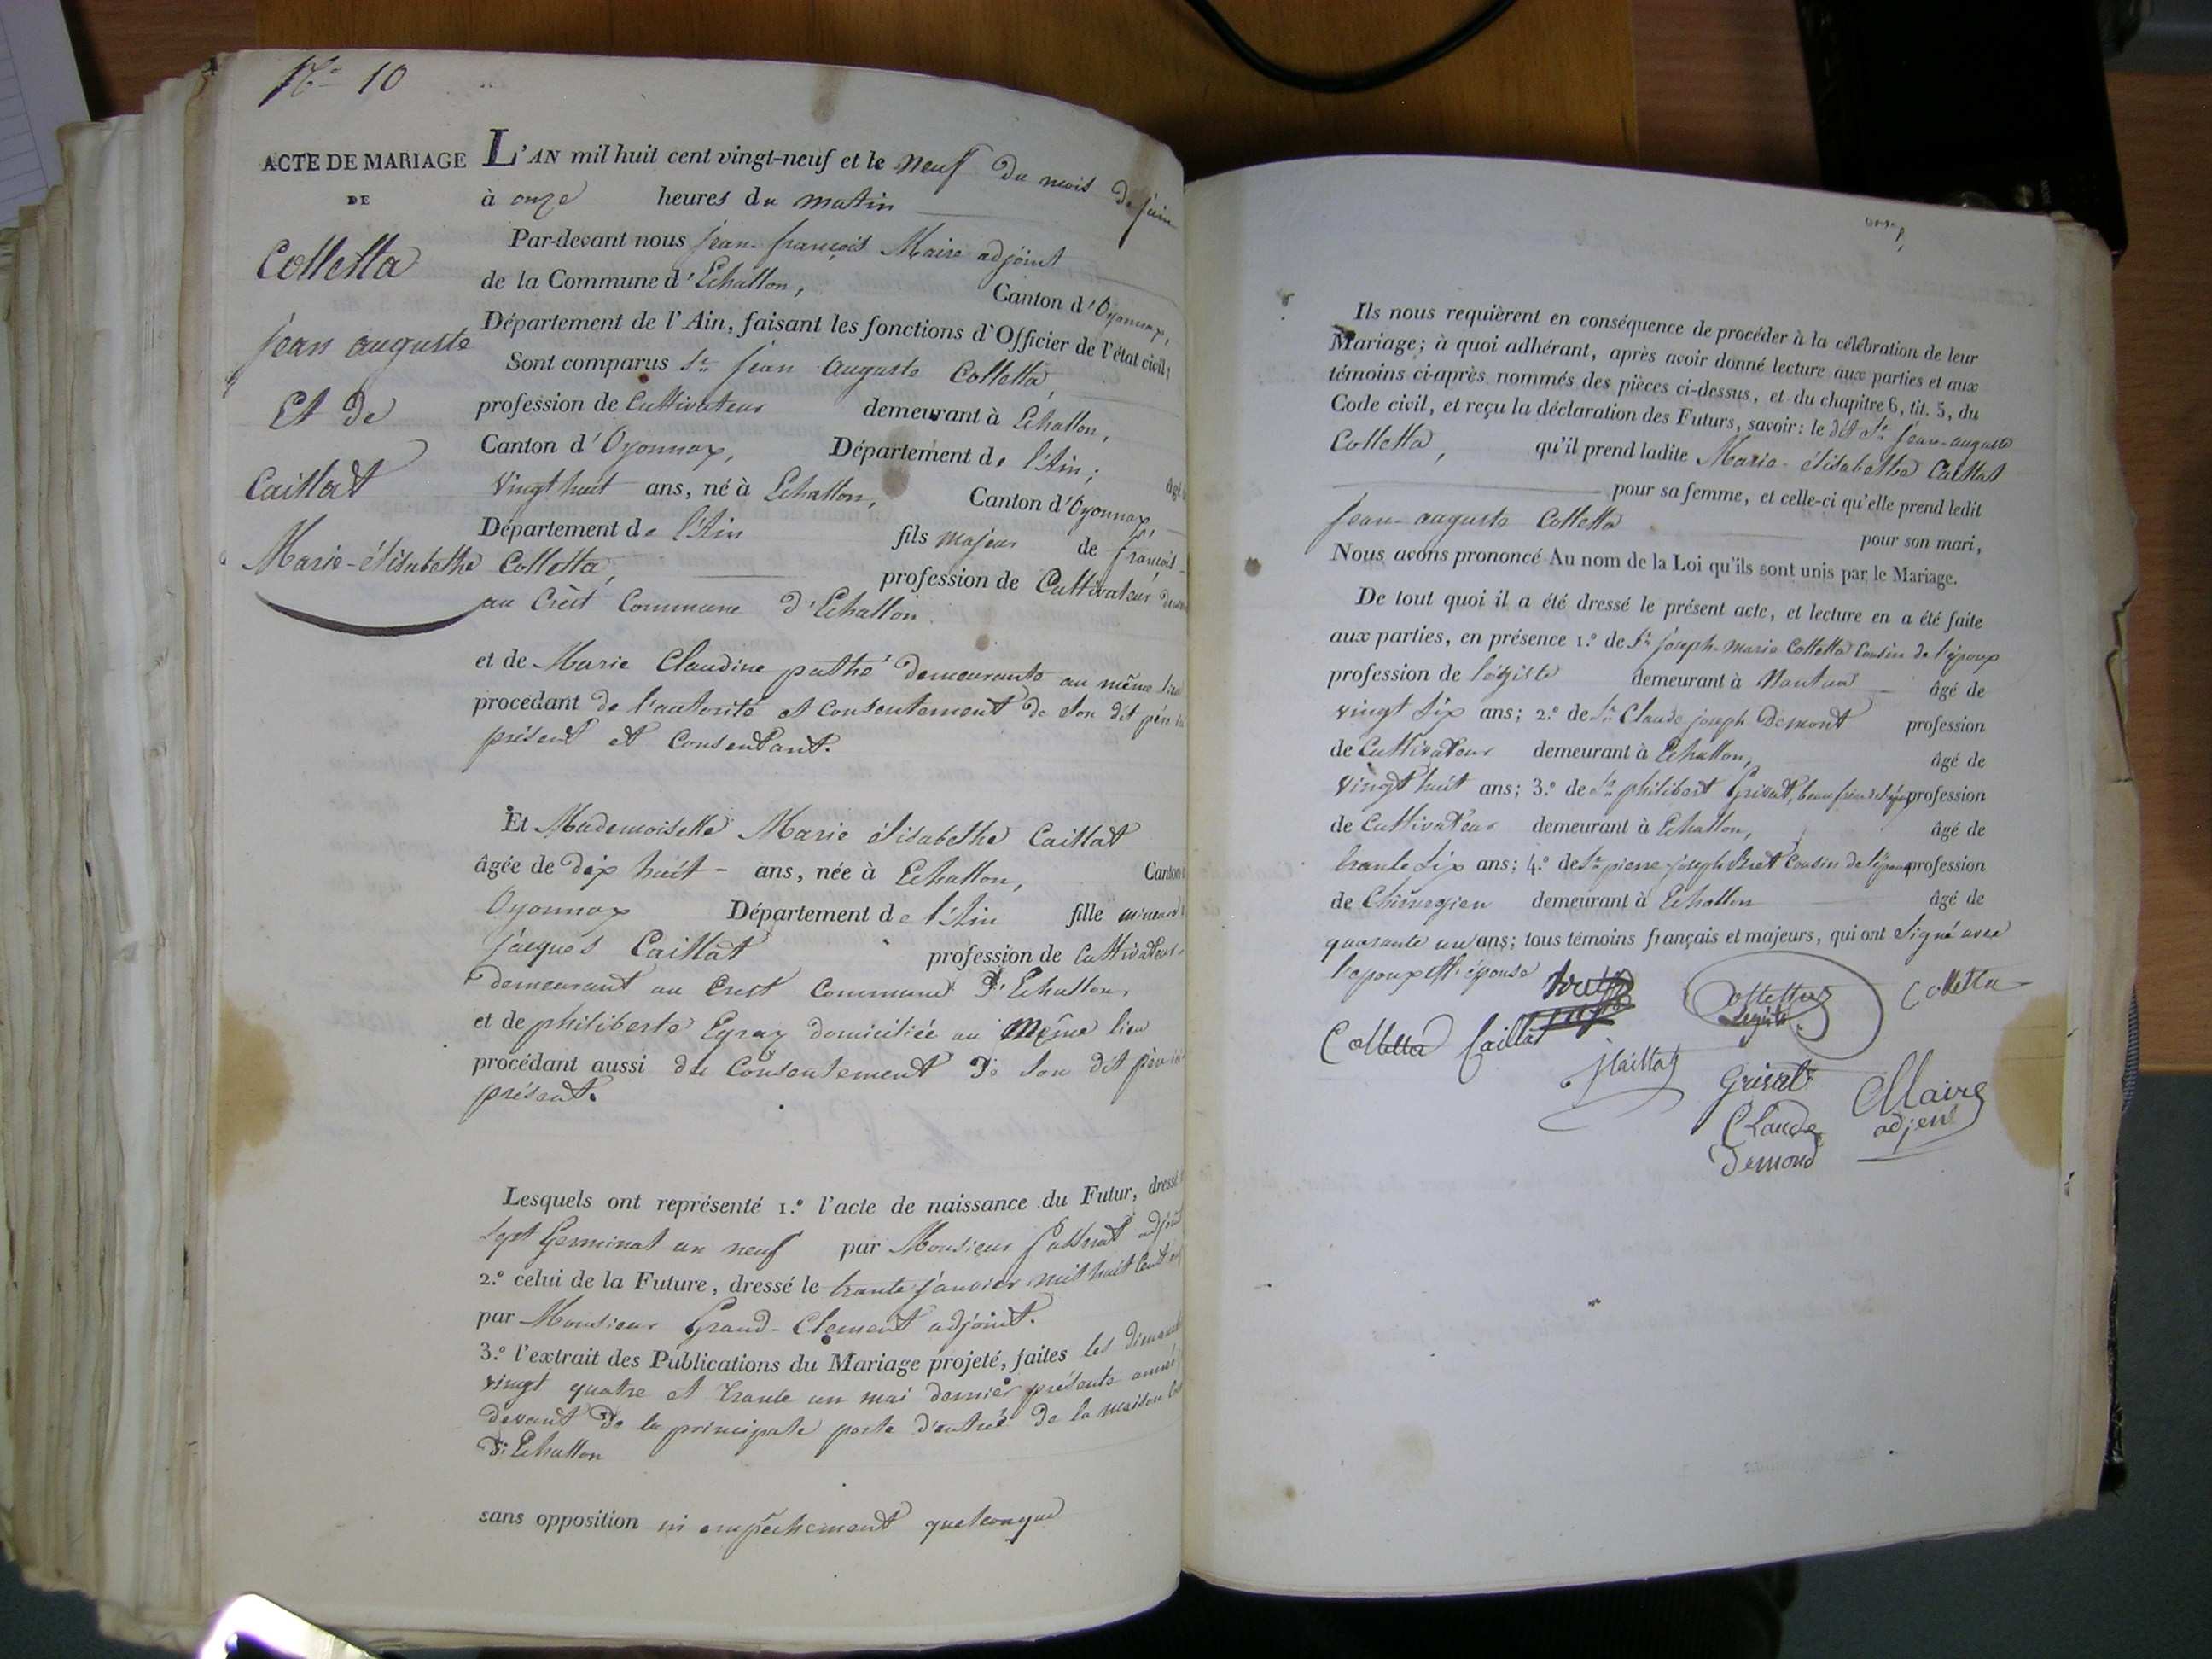 N.º 10
ACTE DE MARIAGE
DE
Colletta
jean auguste
Et de
Caillat
Marie-élisabethe
L'AN mil huit cent vingt-neuf et le neuf du mois de juin
à onze heures du matin
Par-devant nous jean-françois Maire adjoint
de la Commune d'Echallon, Canton d'Oyonnax,
Département de l'Ain, faisant les fonctions d'Officier de l'état civil;
Sont comparus Sr. jean auguste Colletta,
profession de Cultivateur demeurant à Echallon,
Canton d'Oyonnax, Département de l'Ain; âgé
vingt huit ans, né à Echallon, Canton d'Oyonnax,
Département de l'Ain fils majeur de françois
Colletta, profession de Cultivateur
au Crêt Commune d'Echallon.
et de Marie Claudine demeurante au même lieu
procédant de l'autorité et consentement de son dit père
présent et consentant.
Et Mademoiselle Marie élisabethe Caillat
âgée de dix huit - ans, née à Echallon, Canton
Oyonnax Département de l'Ain fille mineure
jacques Caillat profession de Cultivateur
demeurant au Crest Commune d'Echallon,
et de philiberte Egraz domiciliée au Même lieu
procédant aussi du Consentement de son dit père
présent.
Lesquels ont représenté 1.º l'acte de naissance du Futur, dressé
sept Germinal an neuf par Monsieur adjoint
2.º celui de la Future, dressé le trente janvier mil huit cent
par Monsieur Grand-Clement adjoint.
3.º l'extrait des Publications du Mariage projeté, faites les
vingt quatre et trente un mai dernier présente année
devant de la principale porte d'entrée de la maison
d'Echallon
sans opposition ni empêchement quelconque
Ils nous requièrent en conséquence de procéder à la célébration de leur
Mariage; à quoi adhérant, après avoir donné lecture aux parties et aux
témoins ci-après nommés des pièces ci-dessus, et du chapitre 6, tit. 5, du
Code civil, et reçu la déclaration des Futurs, savoir: le dit Sr. jean-auguste
Colletta, qu'il prend ladite Marie-élisabethe Caillat
pour sa femme, et celle-ci qu'elle prend ledit
jean-auguste Colletta pour son mari,
Nous avons prononcé Au nom de la Loi qu'ils sont unis par le Mariage.
De tout quoi il a été dressé le présent acte, et lecture en a été faite
aux parties, en présence 1.º de Sr. joseph-marie Colletta Cousin de l'époux
profession de légiste demeurant à Nantua âgé de
vingt six ans; 2.º de Sr. Claude joseph Demont profession
de Cultivateur demeurant à Echallon, âgé de
vingt huit ans; 3.º de Sr. philibert Grivat, beau frère de profession
de Cultivateur demeurant à Echallon, âgé de
trente six ans; 4.º de Sr. pierre joseph Bret Cousin de profession
de Chirurgien demeurant à Echallon âgé de
quarante un ans; tous témoins français et majeurs, qui ont signé avec
l'epoux et l'épouse
Colletta Légiste
Colletta
Colletta Caillat
jCaillat
Grivat
Claude
Demond
Maire
adjent